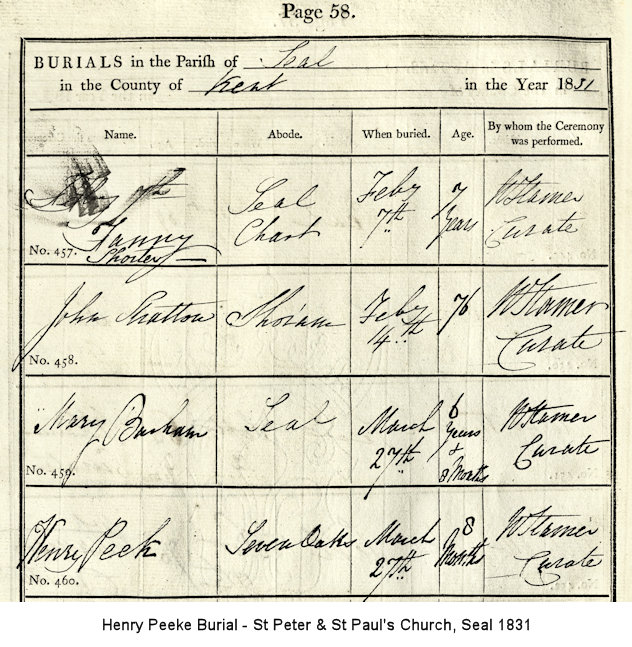 Page 58.
BURIALS in the Parish of Seal
in the County of Kent in the Year 1831
Name. Abode. When buried. Age. By whom the Ceremony was performed.
Feby 7th
Fanny Shorter Seal Chart Feby 7th 7 Years W Stamer Curate
No. 457.
John Stratton Shoram Feby 14th 76 W Stamer Curate
No. 458.
Mary Barham Seal March 27th 6 Years & 8 Months W Stamer Curate
No. 459.
Henry Peek Seven Oaks March 27th 8 Months W Stamer Curate
No. 460.
Henry Peeke Burial - St Peter & St Paul's Church, Seal 1831